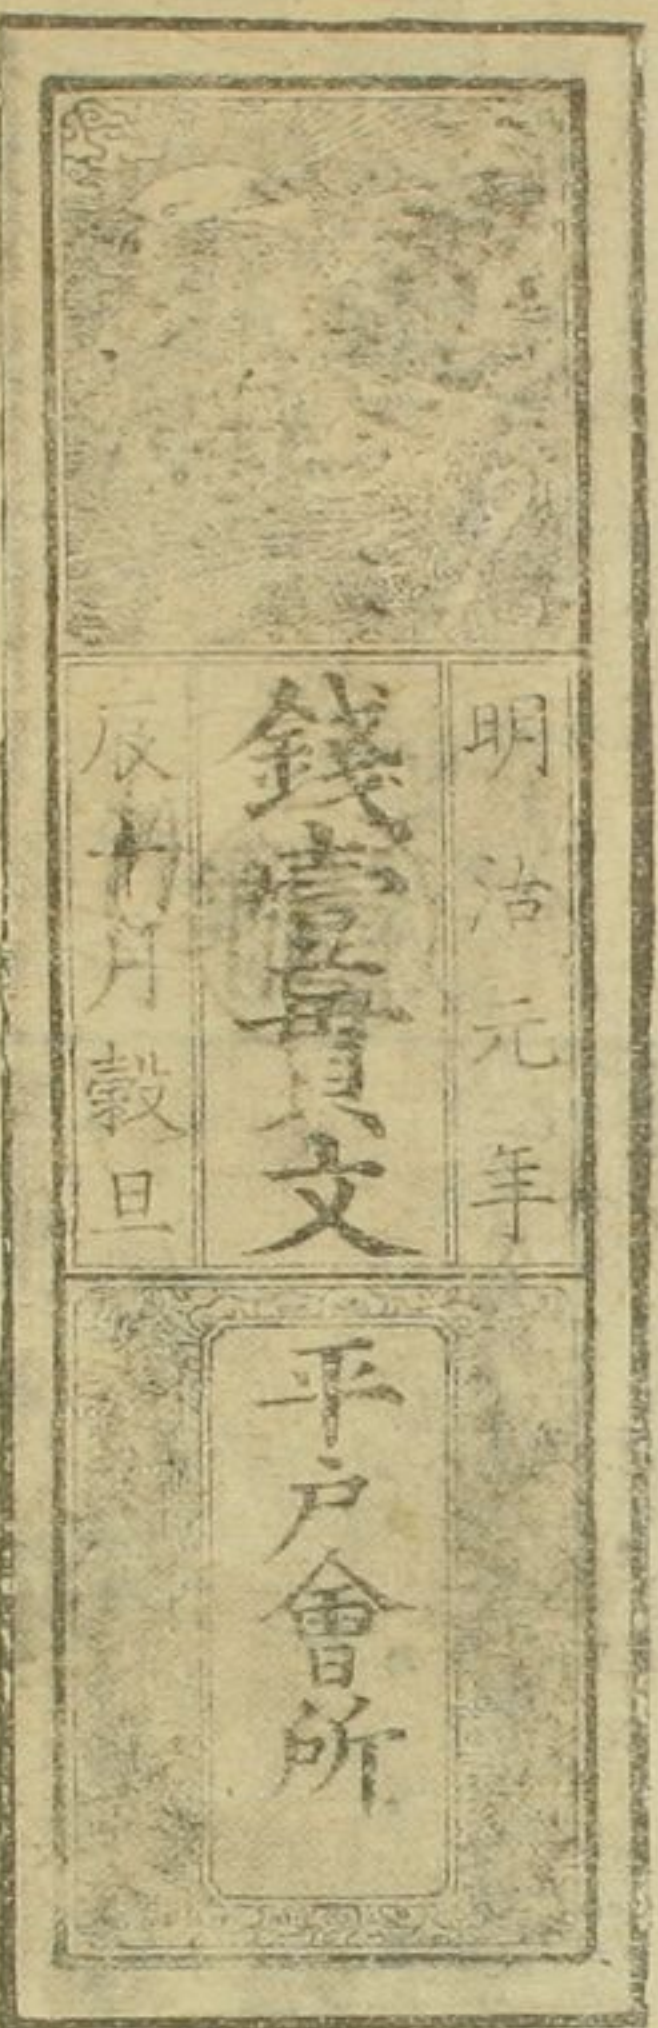 明治元年
錢壹貫文
辰十月穀旦
平戸會所